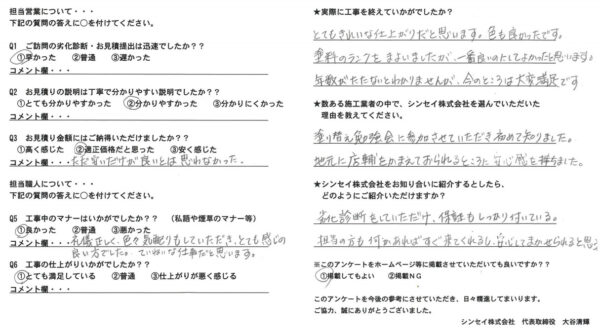 担当営業について・・・
下記の質問の答えに○を付けてください。
Q1 ご訪問の劣化診断・お見積提出は迅速でしたか？？
①早かった ②普通 ③遅かった
コメント欄・・・
Q2 お見積りの説明は丁寧で分かりやすい説明でしたか？
①とても分かりやすかった ②分かりやすかった ③分かりにくかった
コメント欄・・・
Q3 お見積り金額にはご納得いただけましたか？？
①高く感じた ②適正価格だと思った ③安く感じた
コメント欄・・・ただ安いだけが良いとは思わなかった。
担当職人について・・・
下記の質問の答えに○を付けてください。
Q5 工事中のマナーはいかがでしたか？？ （私語や煙草のマナー等）
①良かった ②普通 ③悪かった
コメント欄・・・礼儀正しく、色々気配りもしていただき、とても感じの
良い方でした。ていねいな仕事だと思います。
Q6 工事の仕上がりはいかがでしたか？
①とても満足している ②普通 ③仕上がりが悪く感じる
コメント欄・・・
★実際に工事を終えていかがでしたか？
とてもきれいな仕上がりだと思います。色も良かったです。
塗料のランクをまよいましたが、一番良いのにしてよかったと思います。
年数がたたないとわかりませんが、今のところは大変満足です
★数ある施工業者の中で、シンセイ株式会社を選んでいただいた
理由を教えてください。
塗り替え勉強会に参加させていただき初めて知りました。
地元に店舗をかまえておられるところに安心感を持ちました。
★シンセイ株式会社をお知り合いに紹介するとしたら、
どのようにご紹介いただけますか？
劣化診断をしていただけ、保証もしっかり付いている。
担当の方も何かあればすぐ来てくれるし、安心してまかせられると思う
※このアンケートをホームページ等に掲載させていただいても良いですか？？
①掲載してもよい ②掲載ＮＧ
このアンケートを今後の参考にさせていただき、日々精進してまいります。
ご協力、誠にありがとうございました。
シンセイ株式会社 代表取締役 大谷清輝